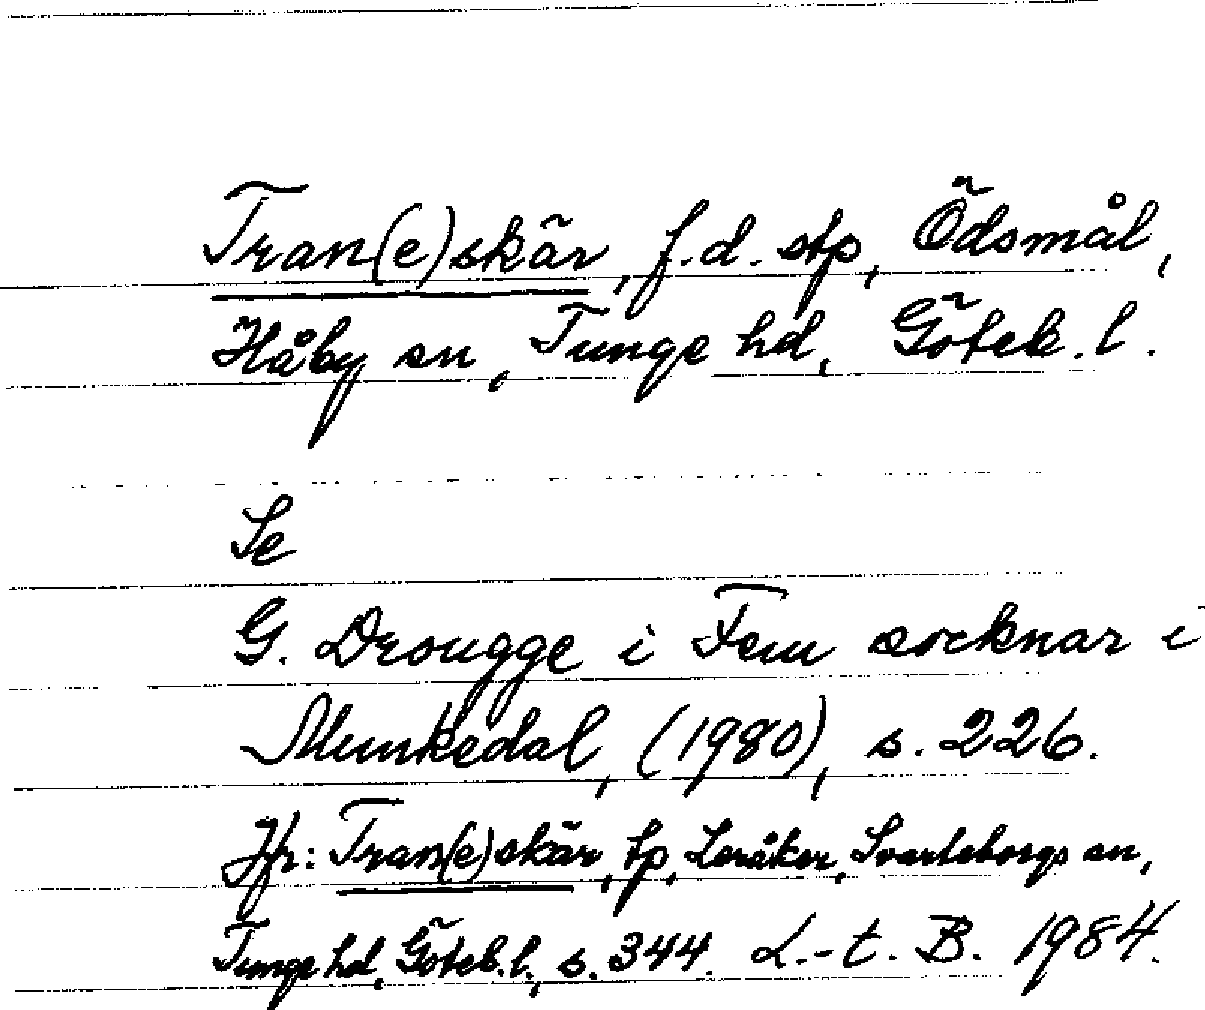 Tran(e)skär, f.d. stp, Ödsmål,
Håby sn, Tunge hd, Göteb. l.
Se
G. Drougge i Fem socknar i
Munkedal, (1980), s. 226.
Jfr: Tran(e)skär, tp, Leråker, Svarteborgs sn,
Tunge hd, Göteb. l., s. 344. L.-t. B. 1984.